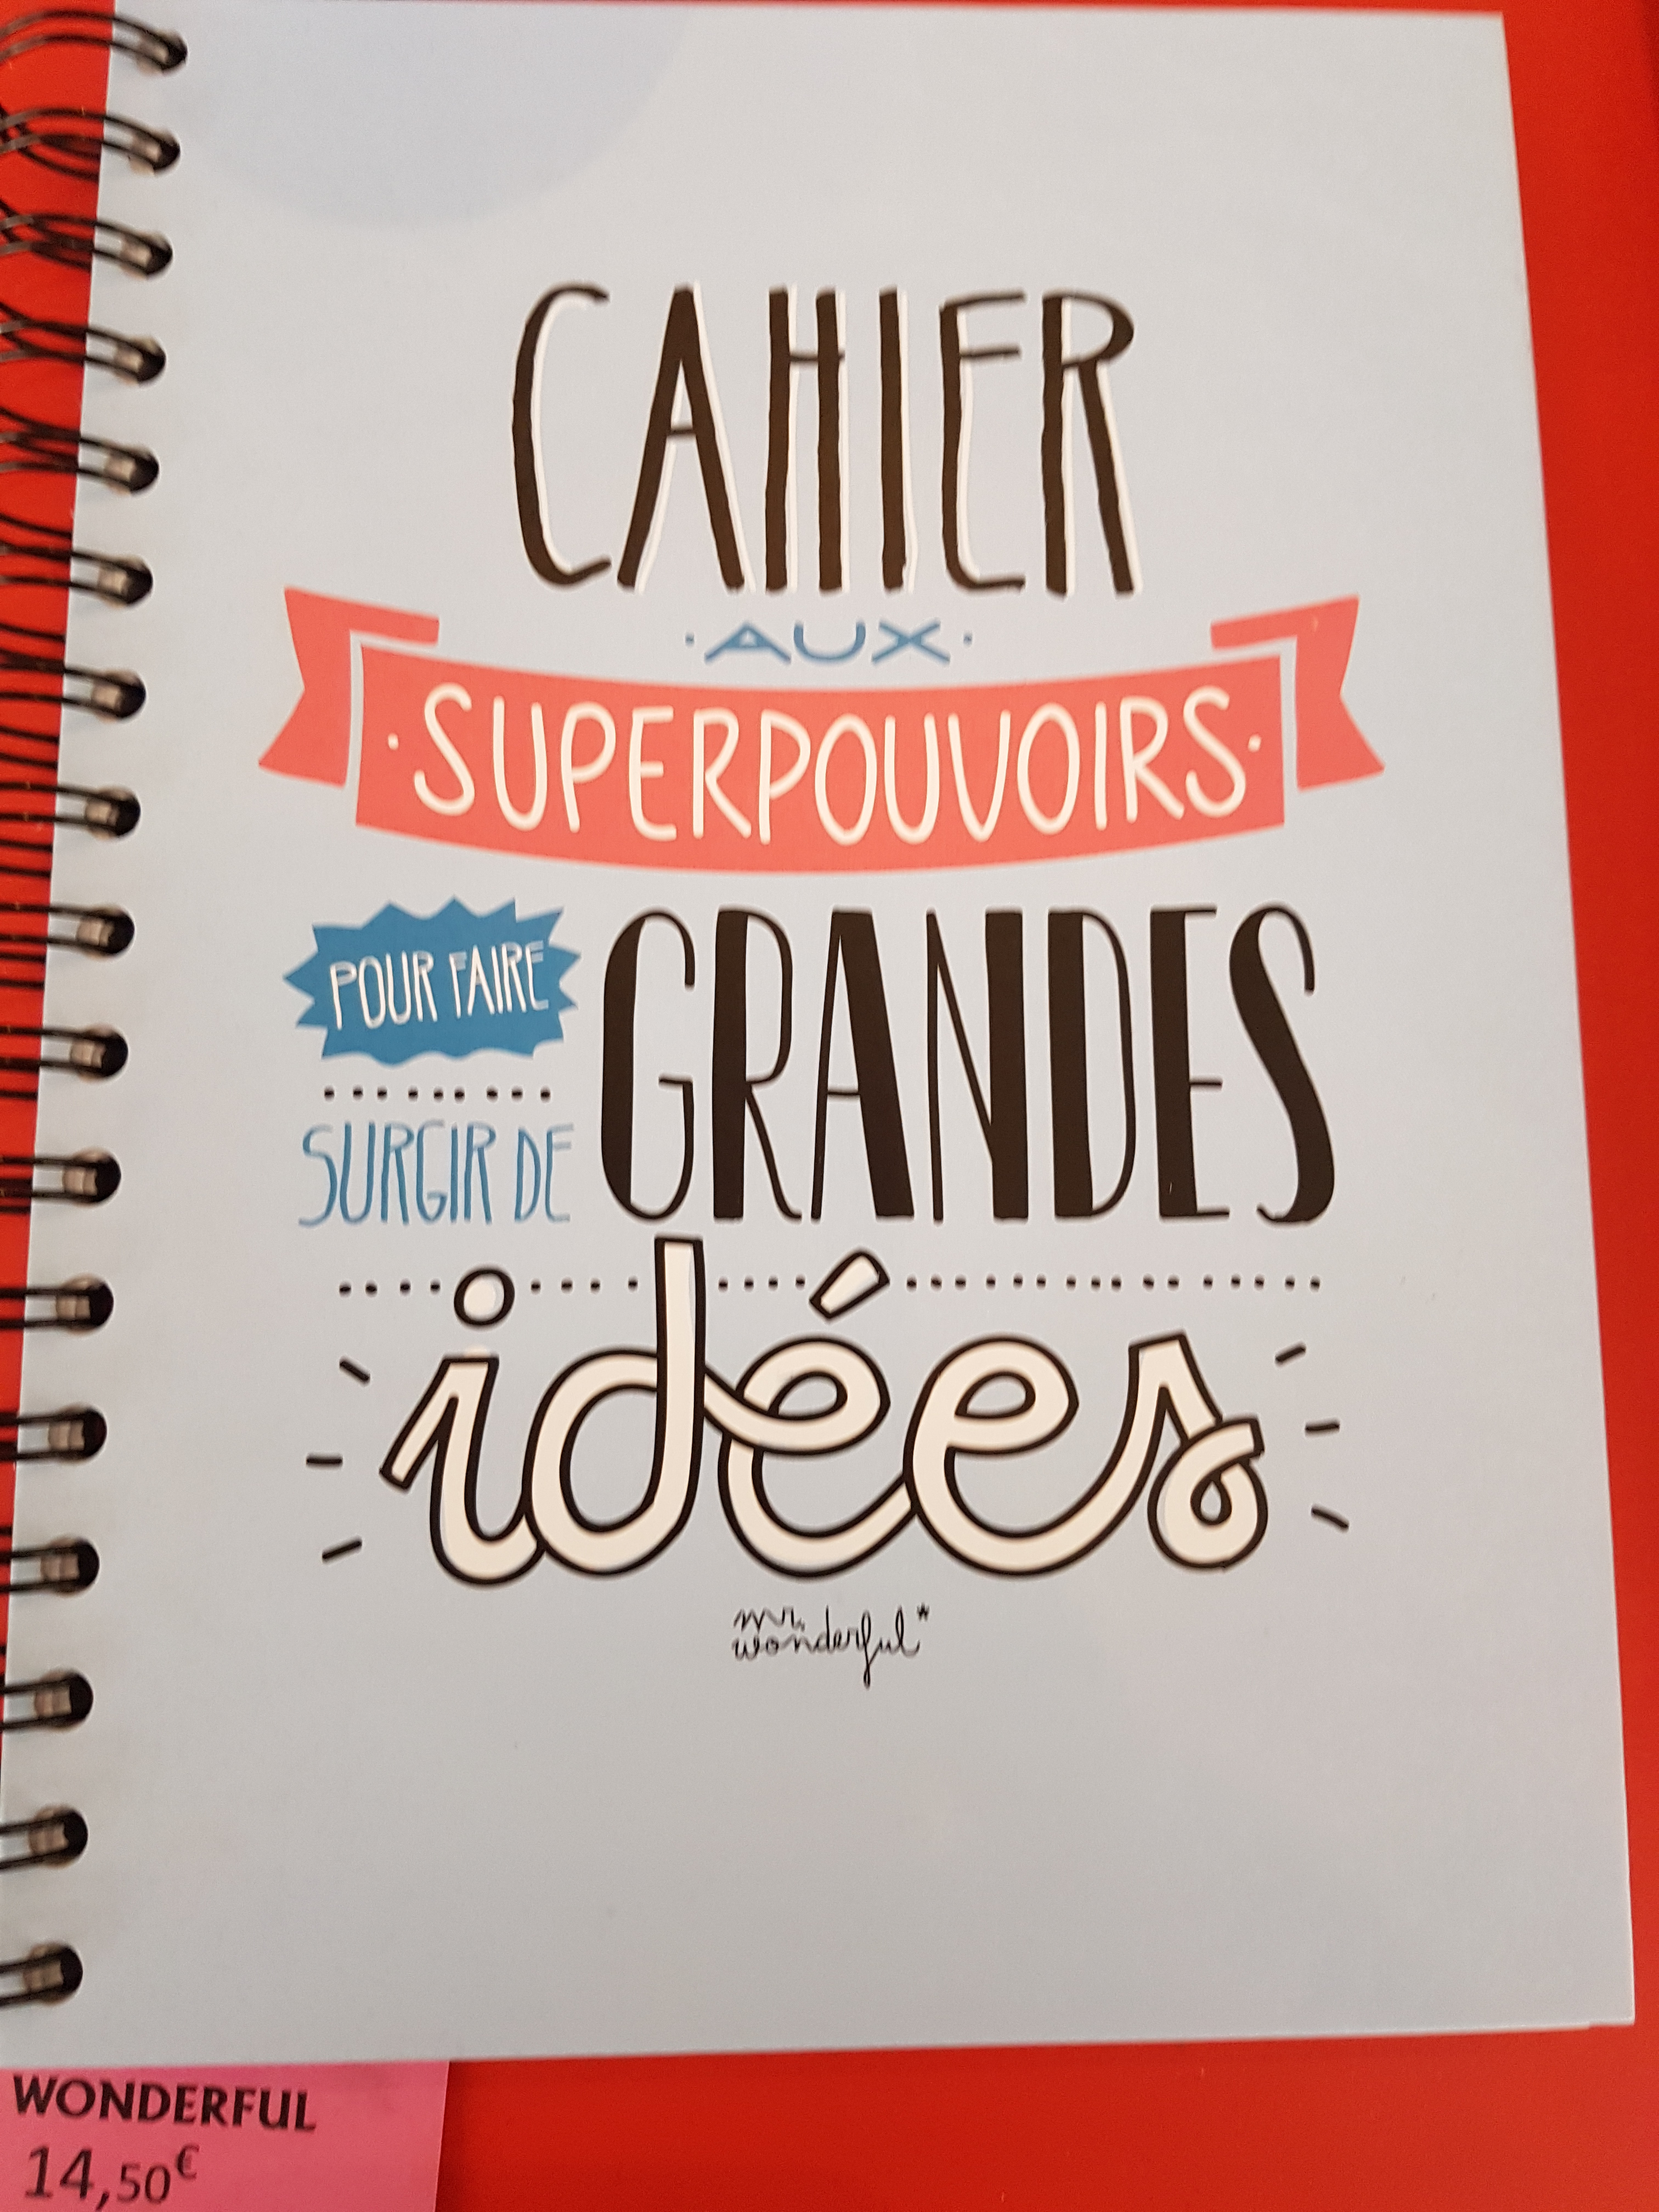 CAHIER
·AUX·
·SUPERPOUVOIRS·
POUR FAIRE
SURGIR DE
GRANDES
idées
mr.
wonderful*
WONDERFUL
14,50€